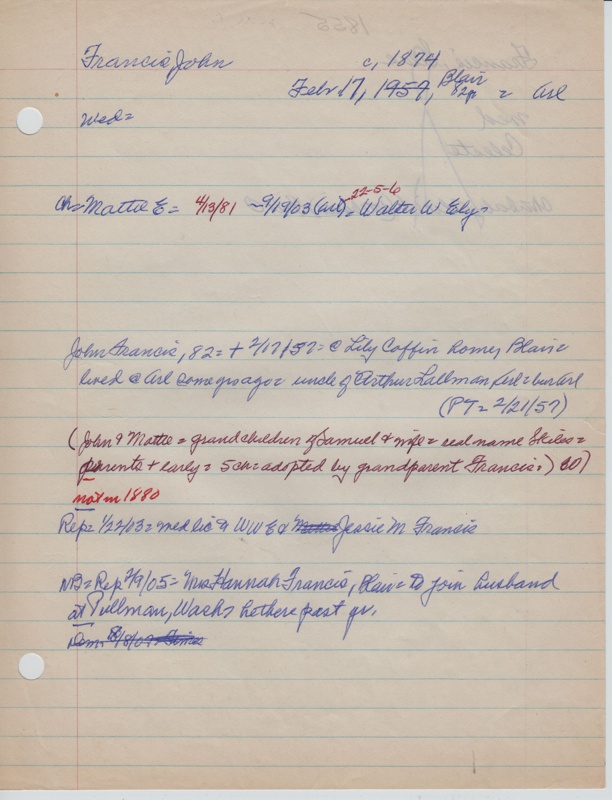 Francis John c, 1874
Feb 17, 1957, Blair 82yr = Arl
Wed=
Ch=Mattie E= 4/13/81 -9/19/03 (Arl)= 22-5-6 Walter W Ely=
John Francis, 82=+ 2/17/57=@ Lily Coffin Home, Blair=
lived @ Arl some yrs ago= uncle of Arthur Lallman Arl=bur Arl
(PT=2/21/57)
(John & Mattie = grandchildren of Samuel & wife= real name Skiles=
parents + early= 5 ch=adopted by grandparent Francis:)
not in 1880
Rep= 1/22/03= med lic & WWE & Mattie Jessie M Francis
NB=Rep 2/9/05= Mrs Hannah Francis, Blair= to join husband
at Pullman, Wash, he there past yr.